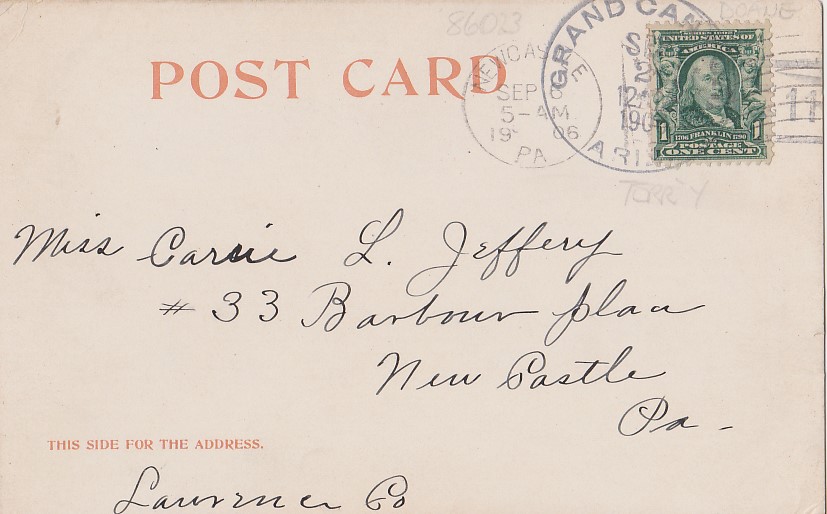 86023
DOANE
POST CARD
NEW CASTLE
SEP
5-AM
19 06
PA
GRAND CAN
ARIZ
SERIES 1902
UNITED STATES OF
AMERICA
1706 FRANKLIN 1790
1 POSTAGE 1
ONE CENT
11
TORREY
Miss Carrie L. Jeffery
# 33 Barbour place
New Castle
Pa -
THIS SIDE FOR THE ADDRESS.
Lawrence Co